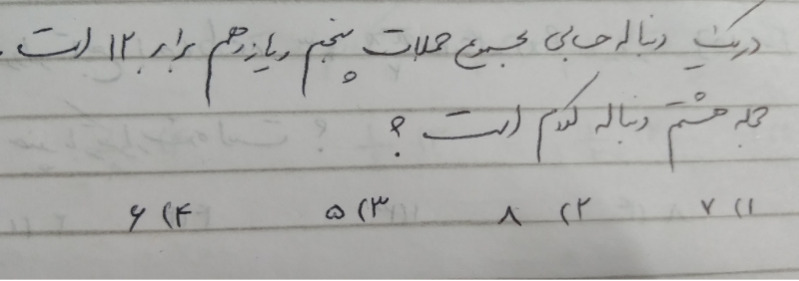 در یک دنباله حسابی مجموع جملات پنجم و یازدهم برابر ۱۲ است.
جمله هشتم دنباله کدام است ؟
۱) ۷ ۲) ۸ ۳) ۵ ۴) ۶